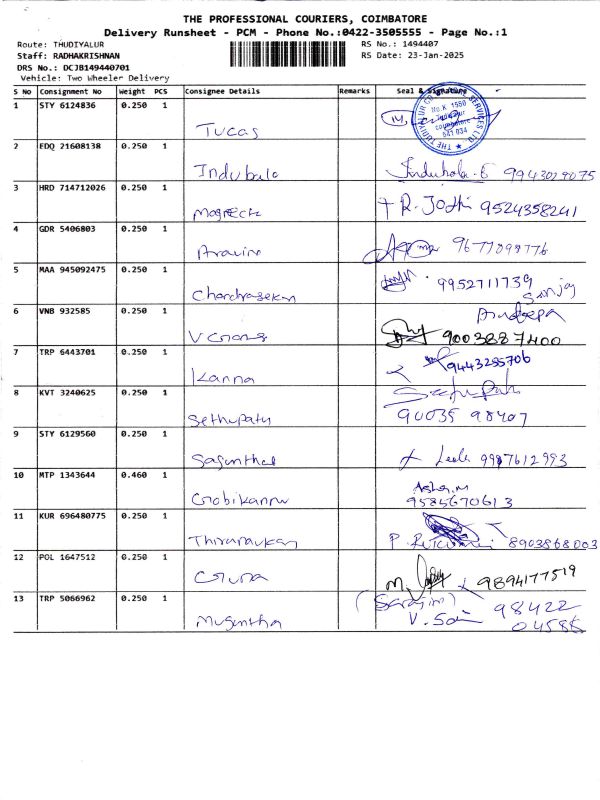 THE PROFESSIONAL COURIERS, COIMBATORE
Delivery Runsheet - PCM - Phone No.:0422-3505555 - Page No.:1
Route: THUDIYALUR RS No.: 1494407
Staff: RADHAKRISHNAN RS Date: 23-Jan-2025
DRS No.: DCJB149440701
Vehicle: Two Wheeler Delivery
S No Consignment No Weight PCS Consignee Details Remarks Seal & Signature
1 STY 6124836 0.250 1
Tucas
2 EDQ 21608138 0.250 1
Indubala Induhala.E 9943029075
3 HRD 714712026 0.250 1
R. Jodhi 9524358241
4 GDR 5406803 0.250 1
Aravin 9677099776
5 MAA 945092475 0.250 1
Chandrasekar 9952711739
Sanjay
6 VNB 932585 0.250 1
9003887400
7 TRP 6443701 0.250 1
Kanna 9443285706
8 KVT 3240625 0.250 1
Sethupaty 90039 98407
9 STY 6129560 0.250 1
Leela 9987612993
10 MTP 1343644 0.460 1
Gobikannu 9585670613
11 KUR 696480775 0.250 1
8903868003
12 POL 1647512 0.250 1
9894177519
13 TRP 5066962 0.250 1
98422
V. Sai 04585